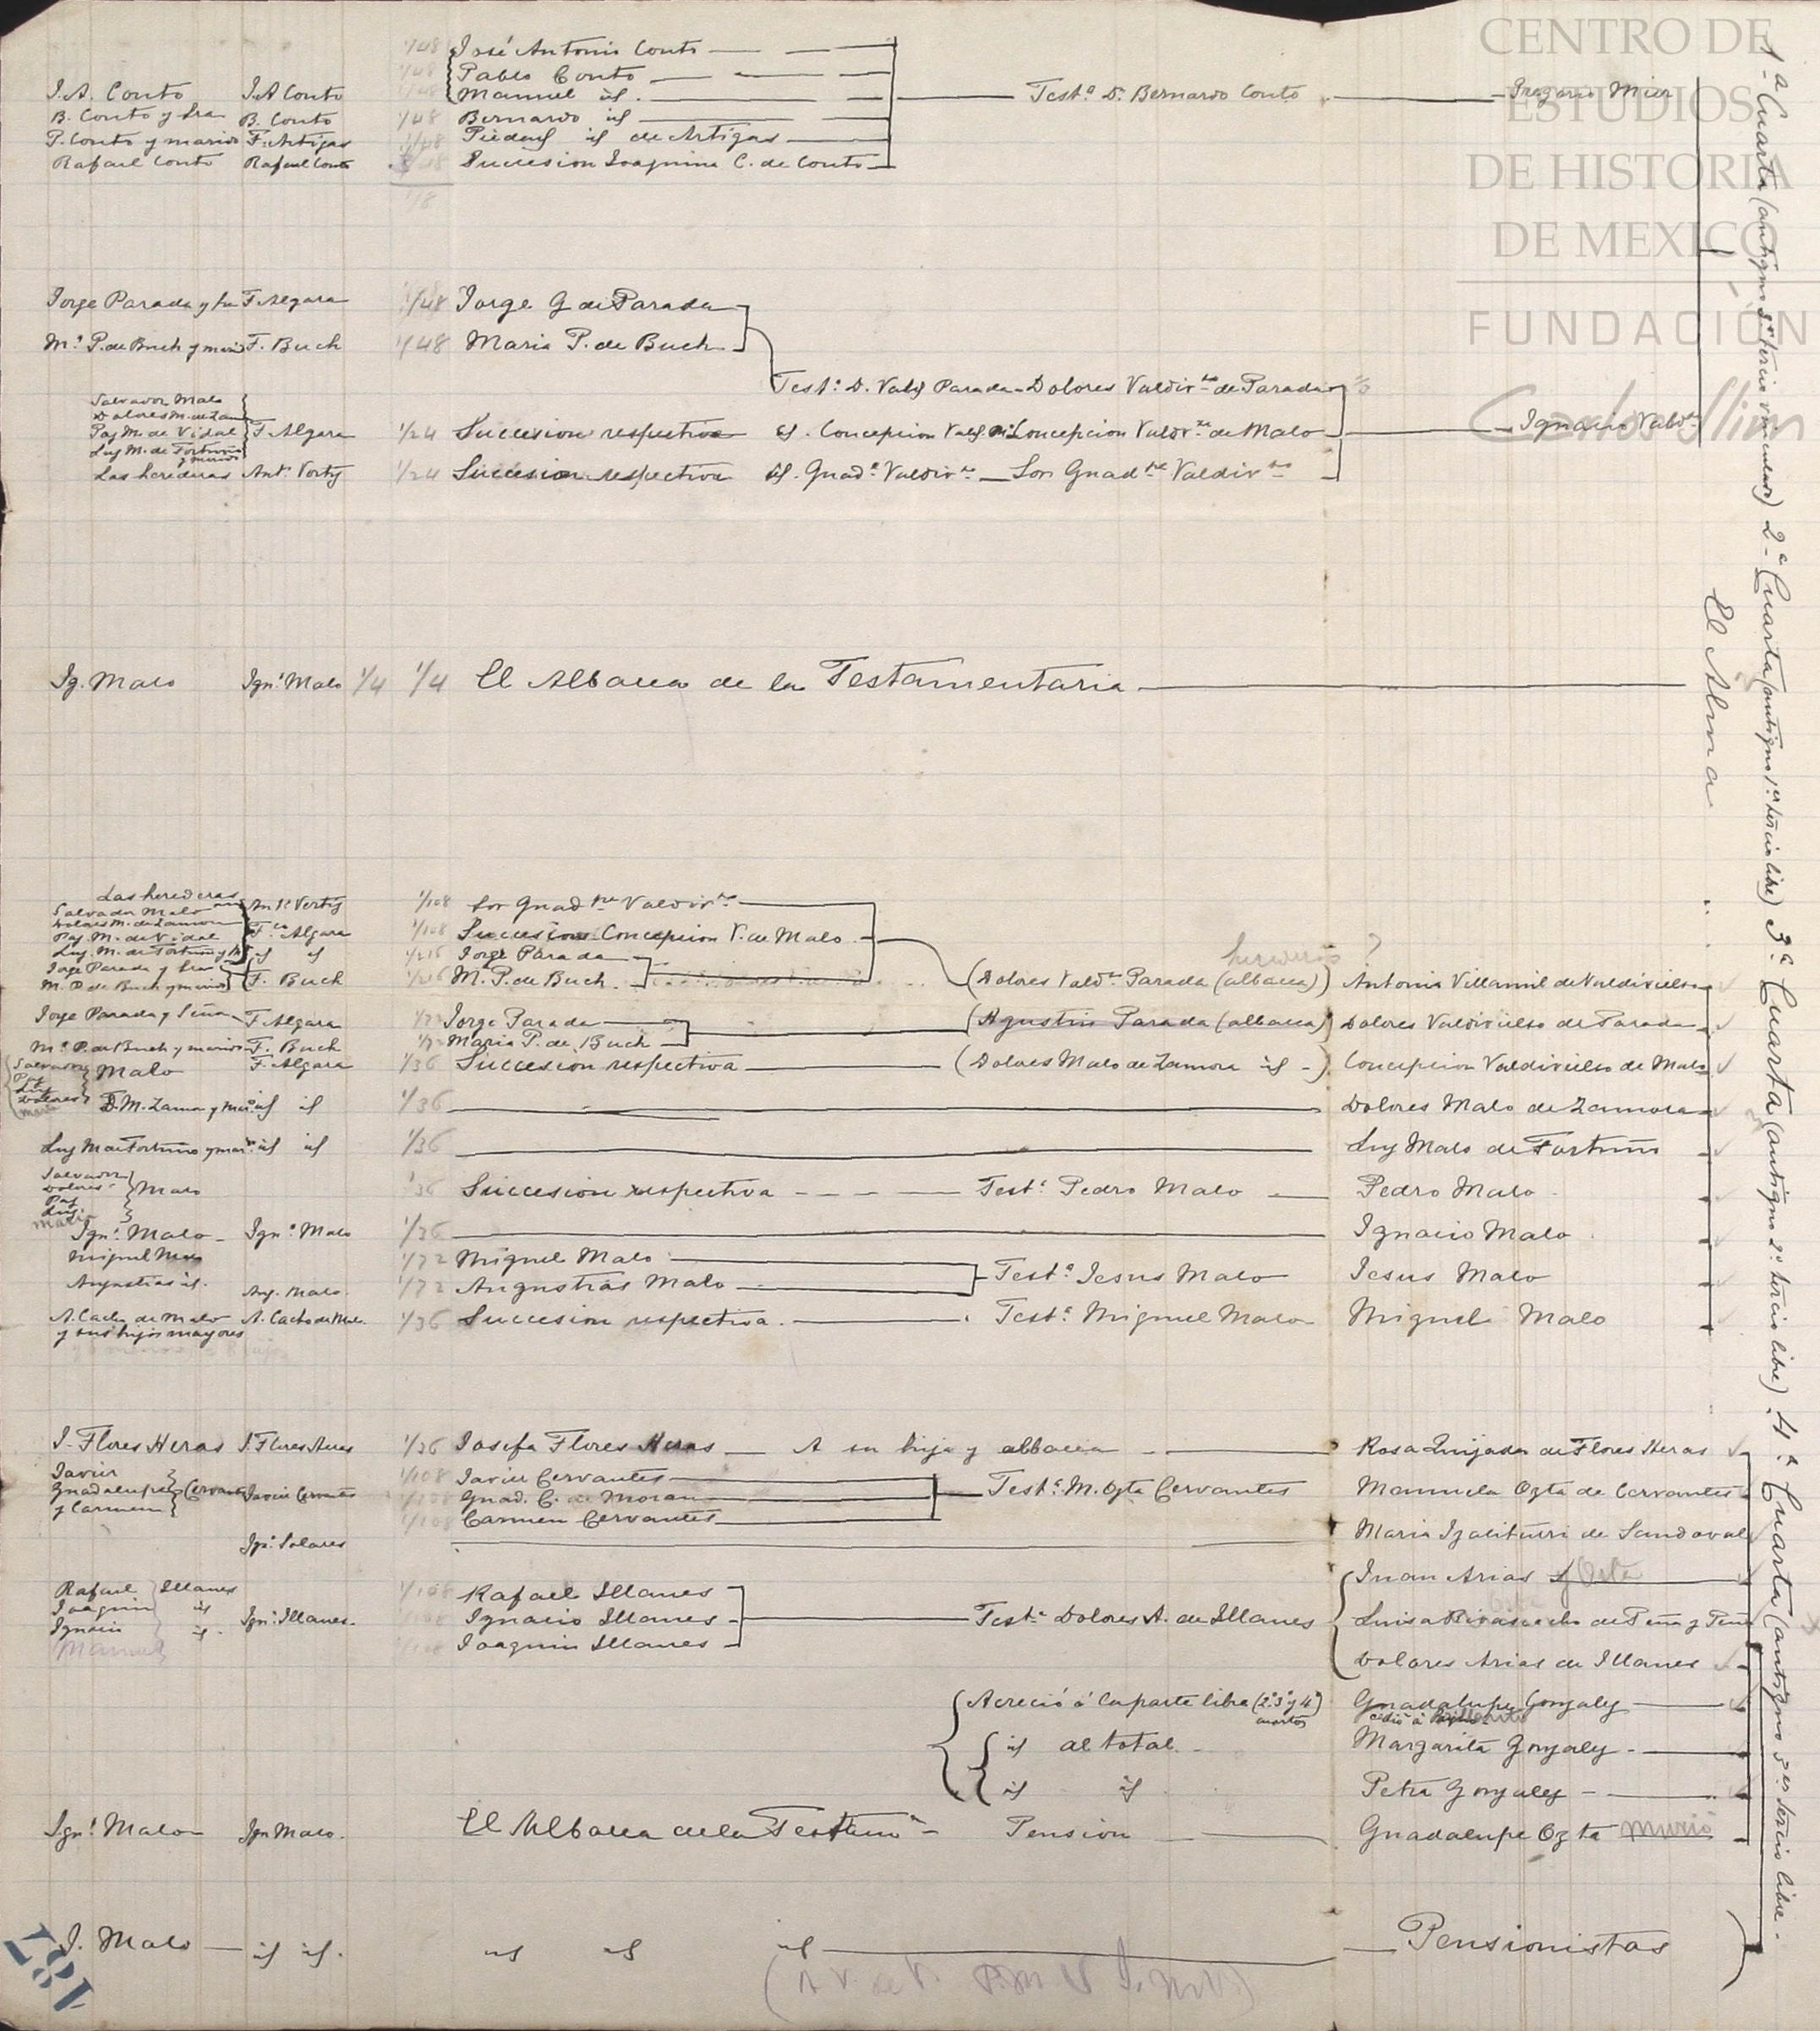 J. A. Conto J. A Conto
B. Conto y Sra B. Conto
P. Conto y marido F. Artigas
Rafael Conto Rafael Conto
1/48 José Antonio Conto
1/48 Pablo Conto
Manuel id.
1/48 Bernardo id
1/48 Piedad id de Artigas
Succesion Joaquina C. de Conto
1/8
Test.ª D. Bernardo Conto
Gregorio Mier
Jorge Parada y Sra F. Algara 1/48 Jorge G de Parada
M.ª P. de Buch y marido F. Buch 1/48 Maria P. de Buch
Test.ª D. Vald Parada - Dolores Valdiv.so de Parada
Salvador Malo
Dolores M. de Zam
Paz M. de Vidal
Luz M. de Fortuño
y marido
F. Algara 1/24 Succesion respectiva id. Concepcion Concepcion Valdiv.so de Malo Ignacio Vald.so
Las herederas Ant.º Vertiz 1/24 Succesion respectiva id. Guad.e Valdiv.so Sor Guad.pe Valdiv.so
Ig. Malo Ign.º Malo 1/4 1/4 El Albacea de la Testamentaria
El Alma
Las herederas Ant.º Vertiz 1/108 Sor Guad.pe Valdiv.so
Salvador Malo
Dolores M. de Zamora
Paz. M. de Vidal
Luz. M. de Fortuño y id id
F.co Algara 1/108 Succesion Concepcion V. de Malo
Jorge Parada y Sra 1/216 Jorge Parada
M. P. de Buch y marido F. Buch 1/216 M. P. de Buch
herederos ?
(Dolores Vald.so Parada (albacea)) Antonia Villamil de Valdivielso
Jorge Parada y Señora F. Algara 1/72 Jorge Parada (Agustin Parada (albacea)) Dolores Valdivielso de Parada
M.ª P. de Buch y marido F. Buch 1/72 Maria P. de Buch
Salvador
Paz
Luz
Dolores
Maria
Malo F. Algara 1/36 Succesion respectiva (Dolores Malo de Zamora id -) Concepcion Valdivielso de Malo
D. M. Zamora y mar.do id id 1/36 Dolores Malo de Zamora
Luz M de Fortuño y mar.do id id 1/36 Luz Malo de Fortuño
Salvador
Dolores
Paz
Luz
Maria
Malo 1/36 Succesion respectiva Test.ª Pedro Malo Pedro Malo
Ign.º Malo Ign.º Malo 1/36 Ignacio Malo
Miguel Malo 1/72 Miguel Malo
Angustias id. Ang. Malo. 1/72 Angustias Malo Test.ª Jesus Malo Jesus Malo
A. Cacho de Malo A. Cacho de Malo. 1/36 Succesion respectiva. Test.ª Miguel Malo Miguel Malo
y sus hijos mayores
J. Flores Heras J. Flores Heras 1/36 Josefa Flores Heras A su hija y albacea Rosa Quijada de Flores Heras
Javier
Guadalupe
y Carmen
Cervantes Javier Cervantes
1/108 Javier Cervantes
1/108 Guad. C. de Moran
1/108 Carmen Cervantes
Test.ª M. Ozta Cervantes Manuela Ozta de Cervantes
Ign.º Solares Maria Izaliturri de Sandoval
Rafael Illanes
Joaquin id
Ignacio id.
Manuel
Ign.º Illanes.
1/108 Rafael Illanes
1/108 Ignacio Illanes
1/108 Joaquin Illanes
Test.ª Dolores A. de Illanes
Juan Arias y Osta
Luisa de Peña y Peña
Dolores Arias de Illanes
Acreció á la parte libre (2.ª 3.ª y 4.ª)
cuartas
Guadalupe Gonzalez
cedió á
id al total. Margarita Gonzalez
id id Petra Gonzalez
Ign.º Malo Ign Malo. El Albacea de la Testam.ª Pension Guadalupe Ozta murió
J. Malo id id. id id id Pensionistas
187
1.ª Cuarta (antiguo 3.er tercio vinculado) 2.ª Cuarta (antiguo 1.er tercio libre) 3.ª Cuarta (antiguo 2.º tercio libre) 4.ª Cuarta (antiguo 3.er tercio libre
CENTRO DE
ESTUDIOS
DE HISTORIA
DE MEXICO
FUNDACIÓN
Carlos Slim